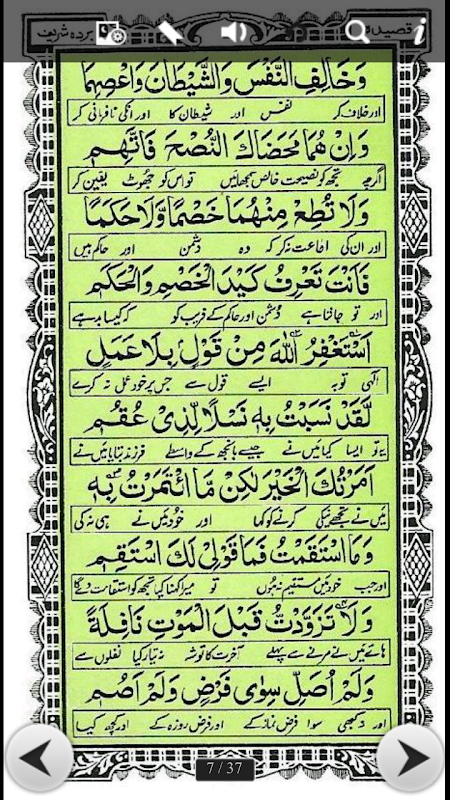 قصیدہ
بردہ شریف
وَخَالِفِ النَّفْسَ وَالشَّيْطَانَ وَاعْصِهِمَا
اور خلاف کر نفس اور شیطان کا اور انکی نافرمانی کر
وَاِنْ هُمَا مَحَضَاكَ النُّصْحَ فَاتَّهِمِ
اگرچہ تجھ کو نصیحت خالص سمجھائیں تو اس کو جھوٹ یقین کر
وَلَا تُطِعْ مِنْهُمَا خَصْمًا وَّلَا حَكَمًا
اور ان کی اطاعت نہ کر کہ وہ دشمن اور حاکم ہیں
فَاَنْتَ تَعْرِفُ كَيْدَ الْخَصْمِ وَالْحَكَمِ
اور تو جانتا ہے دشمن اور حاکم کے فریب کو کہ کیسا بد ہے
اَسْتَغْفِرُ اللّٰهَ مِنْ قَوْلٍ بِلَا عَمَلٍ
الٰہی توبہ ایسے قول سے جس پر خود عمل نہ کرے
لَقَدْ نَسَبْتُ بِهٖ نَسْلًا لِّذِىْ عُقُمِ
یہ تو ایسا کیا میں نے جیسے بانجھ کے واسطے فرزند بتایا میں نے
اَمَرْتُكَ الْخَيْرَ لٰكِنْ مَّا ائْتَمَرْتُ بِهٖ
میں نے تجھے نیکی کرنے کو کہا اور خود میں نے ہی نہ کی
وَمَا اسْتَقَمْتُ فَمَا قَوْلِىْ لَكَ اسْتَقِمِ
اور جب خود میں مستقیم نہ ہوں تو میرا کہنا کیا تجھ کو استقامت دے گا
وَلَا تَزَوَّدْتُّ قَبْلَ الْمَوْتِ نَافِلَةً
ہائے میں نے مرنے سے پہلے آخرت کا توشہ نہ تیار کیا نفلوں سے
وَلَمْ اُصَلِّ سِوٰى فَرْضٍ وَلَمْ اَصُمِ
اور نہ کبھی سوا فرض نماز کے اور فرض روزہ کے اور کچھ کیا
7 / 37